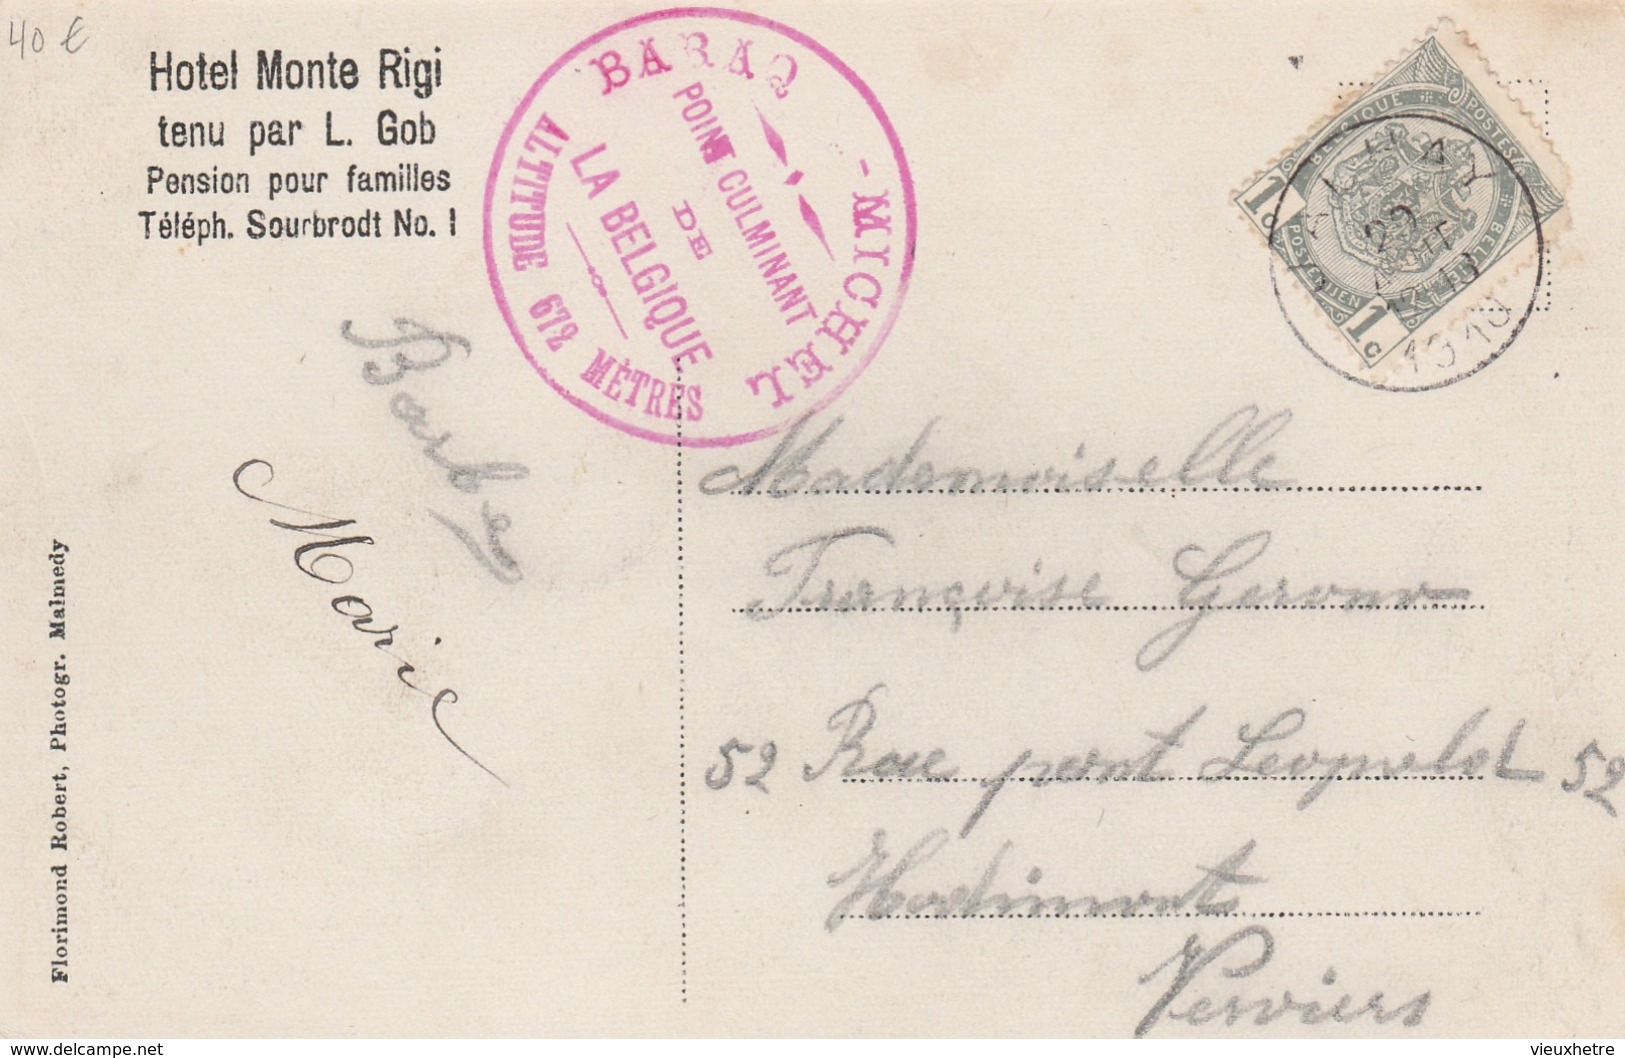 40 €
Hotel Monte Rigi
tenu par L. Gob
Pension pour familles
Téléph. Sourbrodt No. 1
BARAQ-MICHEL
POINT CULMINANT
DE
LA BELGIQUE
ALTITUDE 672 MÈTRES
BELGIQUE POSTES
POSTERIJEN BELGIË
1c
1c
29
1910
Marie
Mademoiselle
Françoise
52 Rue pont Leopold 52
Hodimont
Verviers
Florimond Robert, Photogr. Malmedy
delcampe.net
vieuxhetre